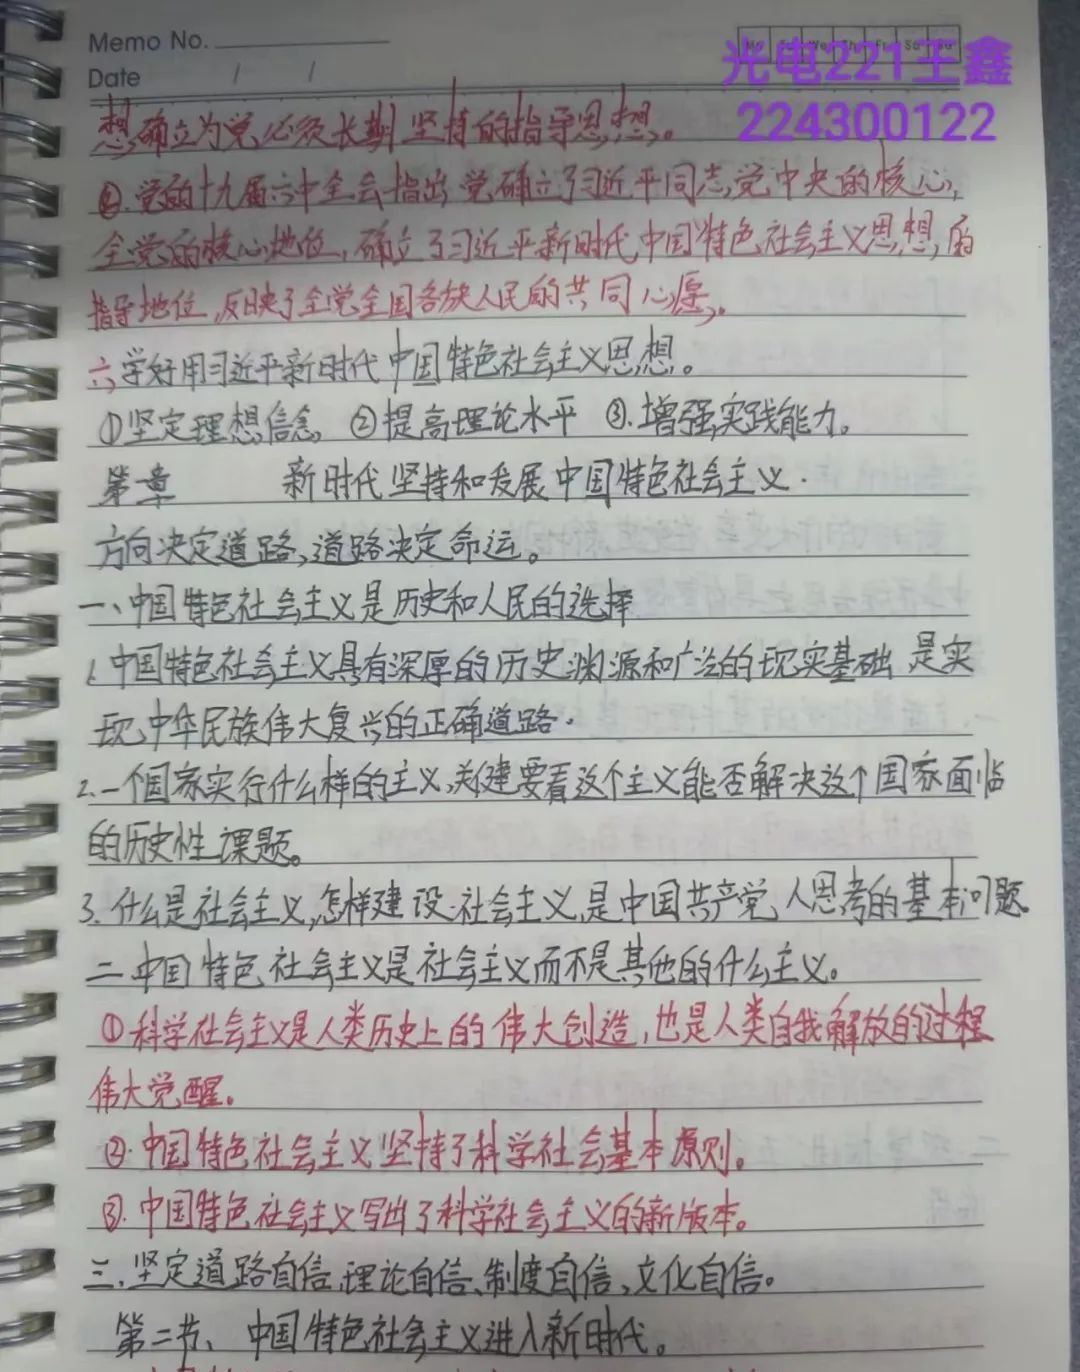 Memo No.
光电221王鑫
Date / /
224300122
想,确立为党必须长期坚持的指导思想。
②.党的十九届六中全会指出,党确立了习近平同志党中央的核心,
全党的核心地位,确立了习近平新时代中国特色社会主义思想,的
指导地位,反映了全党全国各族人民的共同心愿。
六,学好用习近平新时代中国特色社会主义思想。
①坚定理想信念 ②提高理论水平 ③.增强实践能力。
第一章 新时代坚持和发展中国特色社会主义.
方向决定道路,道路决定命运。
一、中国特色社会主义是历史和人民的选择
1.中国特色社会主义具有深厚的历史渊源和广泛的现实基础,是实
现中华民族伟大复兴的正确道路.
2.一个国家实行什么样的主义,关建要看这个主义能否解决这个国家面临
的历史性课题。
3.什么是社会主义,怎样建设社会主义,是中国共产党人思考的基本问题.
二.中国特色社会主义是社会主义而不是其他的什么主义。
①科学社会主义是人类历史上的伟大创造,也是人类自我解放的过程
伟大觉醒.
②.中国特色社会主义坚持了科学社会基本原则。
③.中国特色社会主义写出了科学社会主义的新版本。
三.坚定道路自信,理论自信、制度自信、文化自信。
第二节、中国特色社会主义进入新时代。